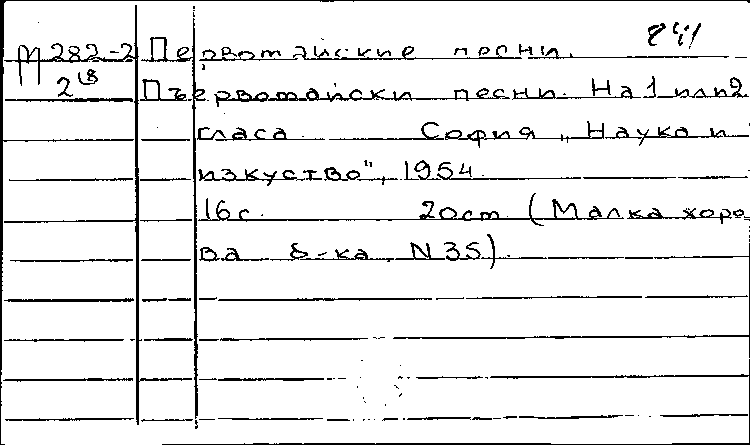 М 282-2 Первомайские песни. 241
2 18 Първомайски песни. На 1 или 2
гласа София „Наука и
изкуство", 1954
16 с. 20 cm (Малка хоро-
ва б-ка, N 35).